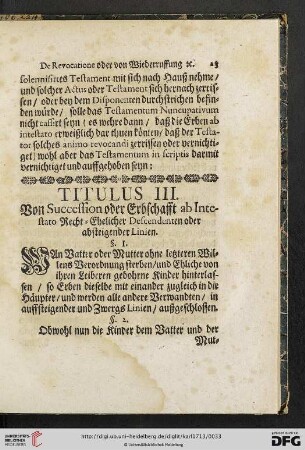 De Revocatione oder von Wiederruffung ꝛc. 23
solennisirtes Testament mit sich nach Hauß nehme /
und solcher Actus oder Testament sich hernach zerris-
sen / oder bey dem Disponenten durchstrichen befin-
den würde / solle das Testamentum Nuncupativum
nicht cassirt seyn ; es wehre dann / daß die Erben ab
intestato erweißlich dar thuen könten / daß der Testa-
tor solches animo revocandi zerrissen oder vernichti-
get ; wohl aber das Testamentum in scriptis darmit
vernichtiget und auffgehoben seyn :
TITULUS III.
Von Succession oder Erbschafft ab Inte-
stato Recht-Ehelicher Descendenten oder
absteigender Linien.
§. 1.
WAn Vatter oder Mutter ohne letzteren Wil-
lens Verordnung sterben / und Ehliche von
ihren Leiberen gebohrne Kinder hinterlas-
sen / so Erben dieselbe mit einander zugleich in die
Häupter / und werden alle andere Verwandten / in
auffsteigender und Zwergs Linien / außgeschlossen.
§. 2.
Obwohl nun die Kinder dem Vatter und der
Mut-
UNIVERSITÄTS-
BIBLIOTHEK
HEIDELBERG
http://digi.ub.uni-heidelberg.de/diglit/kurl1711/0033
© Universitätsbibliothek Heidelberg
gefördert durch die
DFG